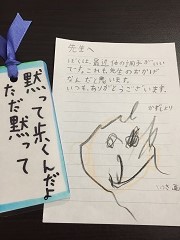 黙って歩くんだよ
ただ黙って
先生へ
ぼくは、最近体の調子がいい
です。これも、先生のおかげ
なんだと思います。
いつも、ありがとうございます。
かずより